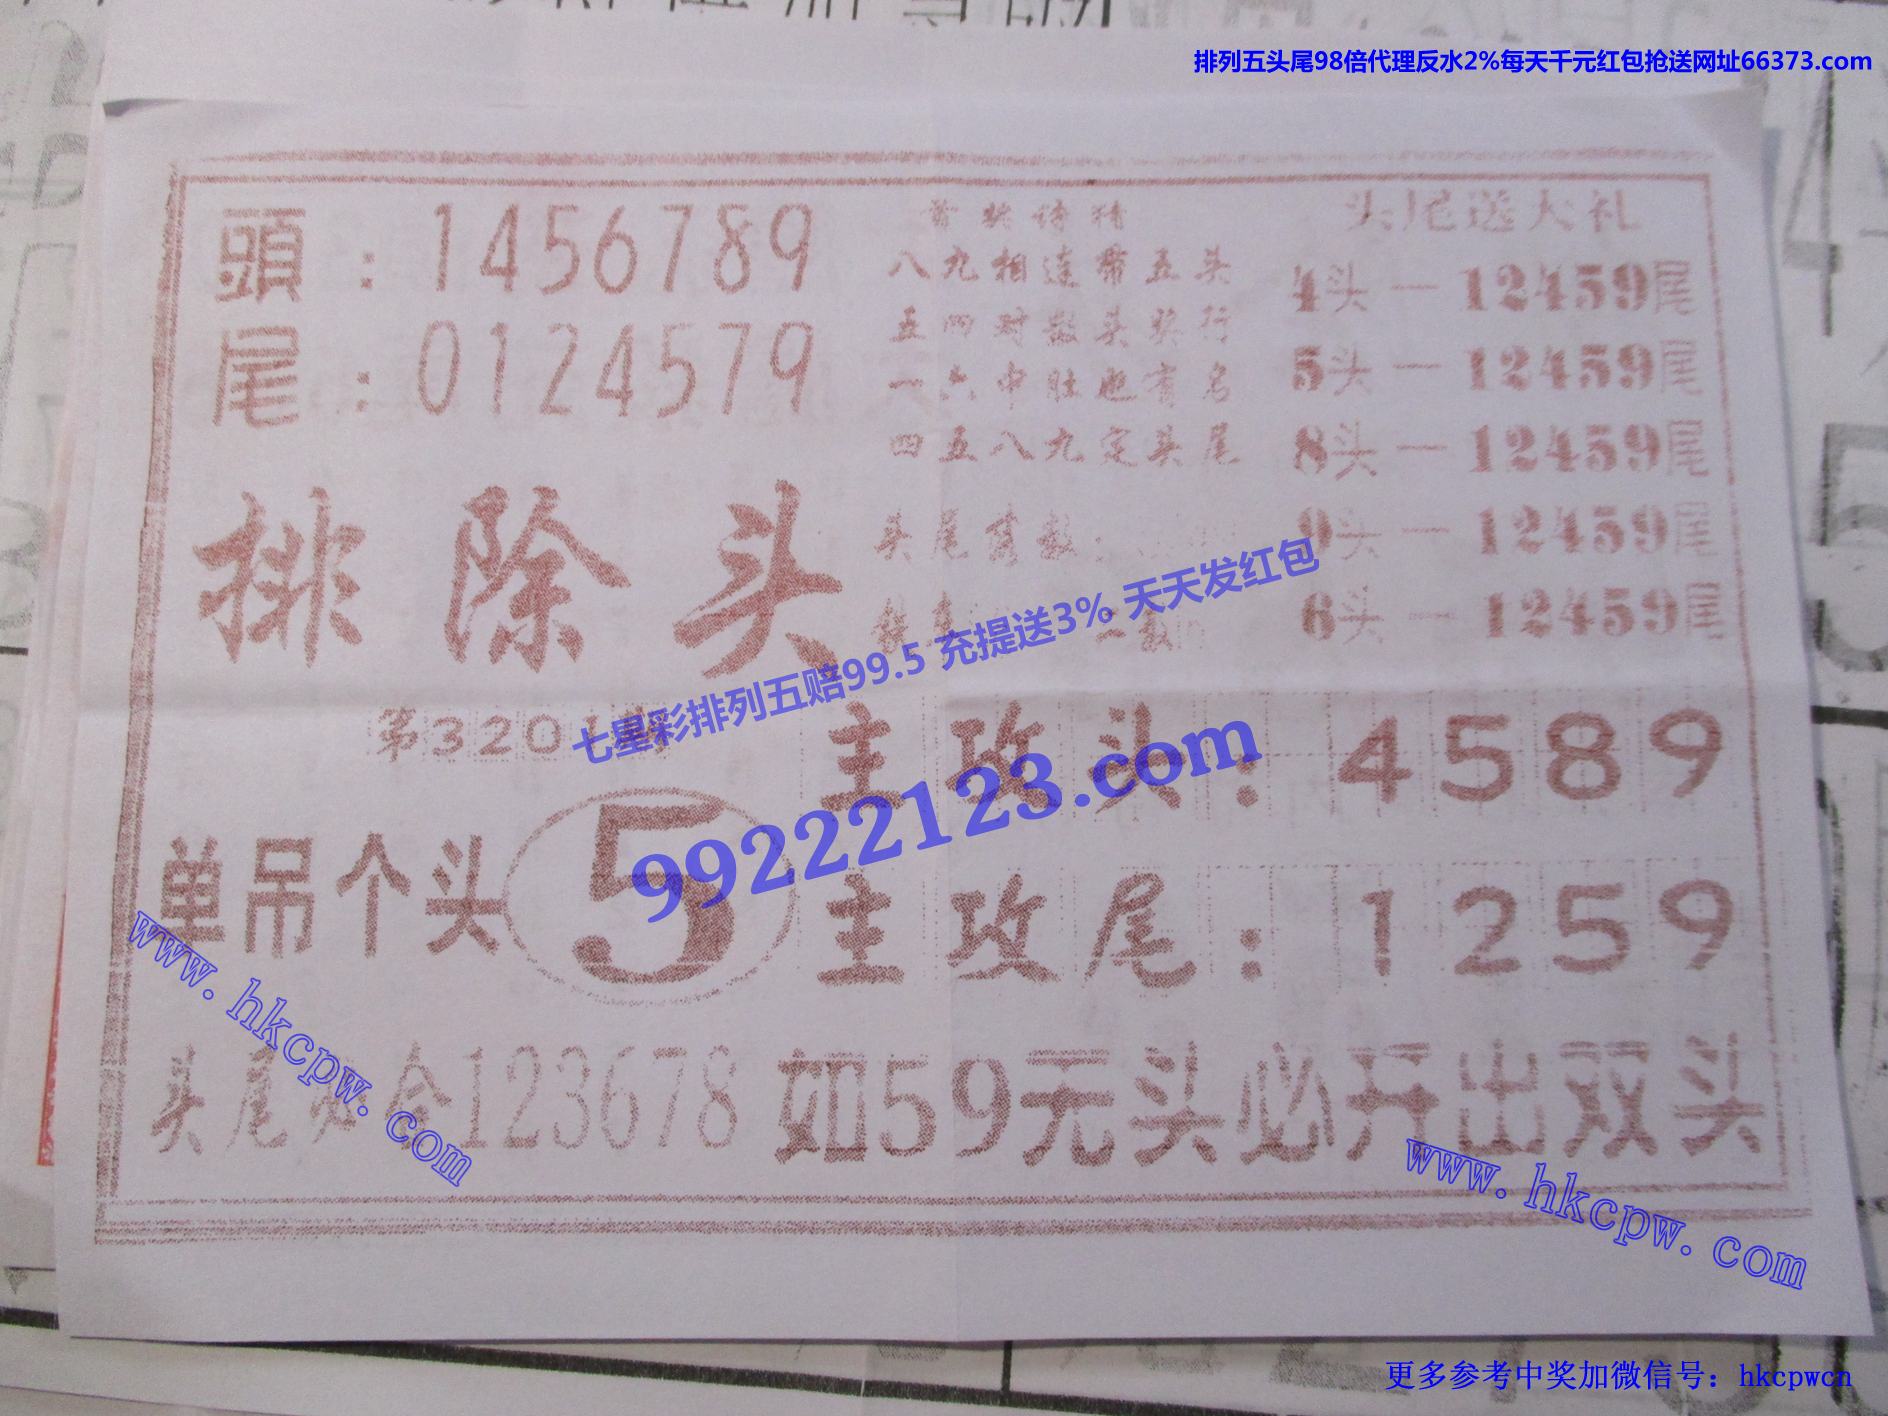 排列五头尾98倍代理反水2%每天千元红包抢送网址66373.com
頭：1456789
尾：0124579
排除头
八九相连带五头
五四对数头奖行
一六中肚也有名
四五八九定头尾
头尾送大礼
4头一12459尾
5头一12459尾
8头一12459尾
9头一12459尾
6头一12459尾
七星彩排列五赔99.5 充提送3% 天天发红包
99222123.com
第3201期
单吊个头5
主攻头：4589
主攻尾：1259
头尾必合123678如59无头必开出双头
www.hkcpw.com
www.hkcpw.com
更多参考中奖加微信号：hkcpwcn